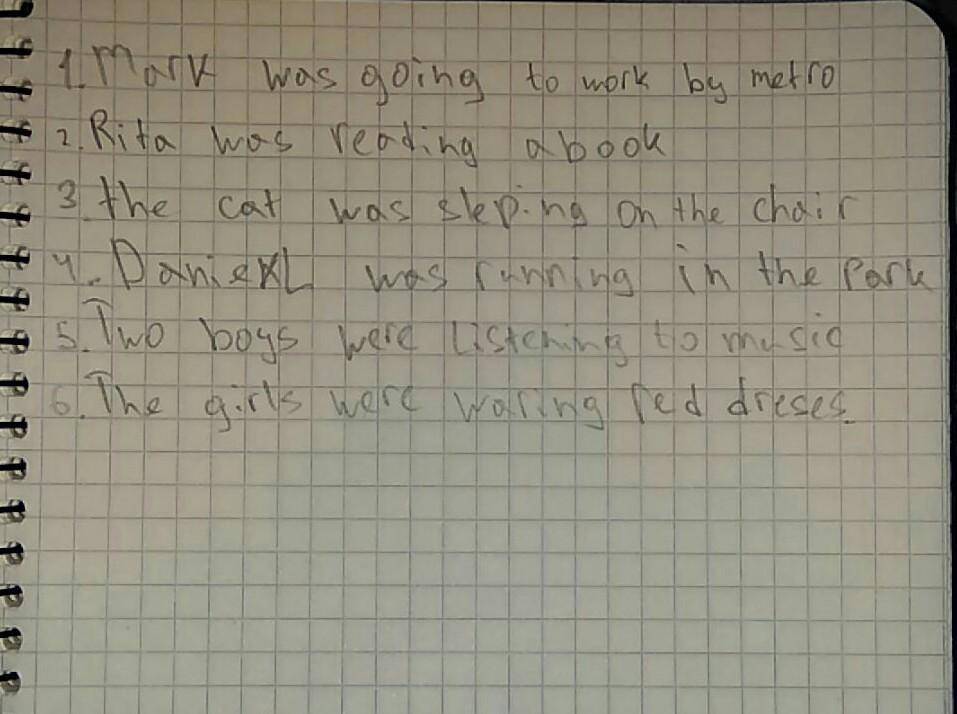 1. Mark was going to work by metro
2. Rita was reading a book
3. the cat was sleping on the chair
4. Daniel was running in the Park
5. Two boys were Listening to music
6. The girls were waring red dreses.